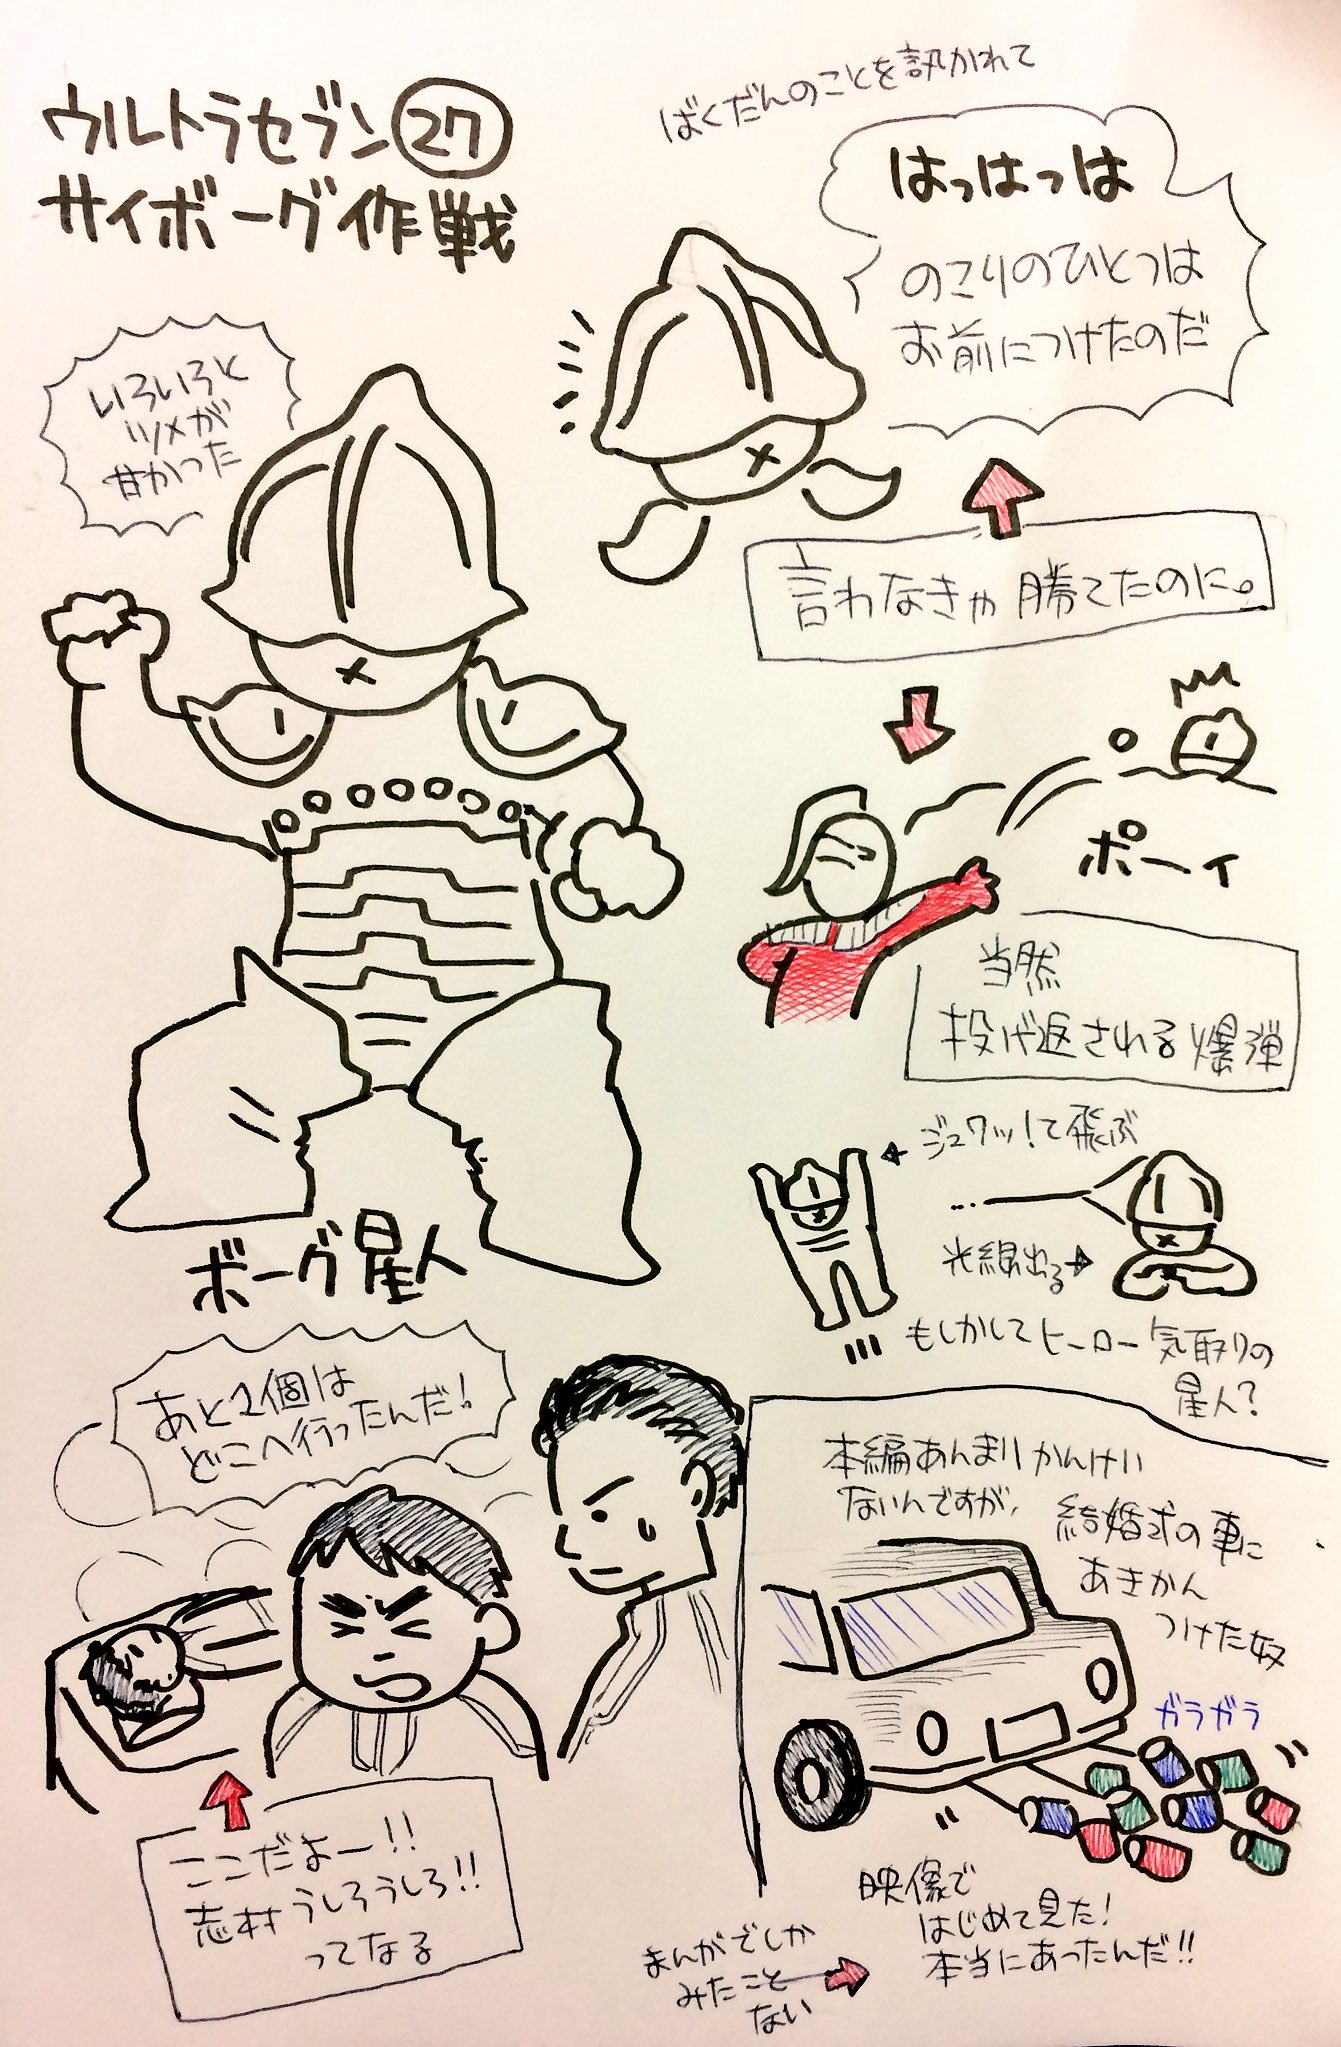 ウルトラセブン㉗
サイボーグ作戦
ばくだんのことを訊かれて
はっはっは
のこりのひとつは
お前につけたのだ
いろいろと
ツメが
甘かった
言わなきゃ勝てたのに。
ポーイ
当然
投げ返される爆弾
ジュワッ!て飛ぶ
光線出る
もしかしてヒーロー気取りの
星人?
ボーグ星人
あと2個は
どこへ行ったんだ!
本編あんまりかんけい
ないんですが、
結婚式の車に
あきかん
つけた奴
ガラガラ
ここだよー!!
志村うしろうしろ!!
ってなる
まんがでしか
みたこと
ない
映像で
はじめて見た!
本当にあったんだ!!